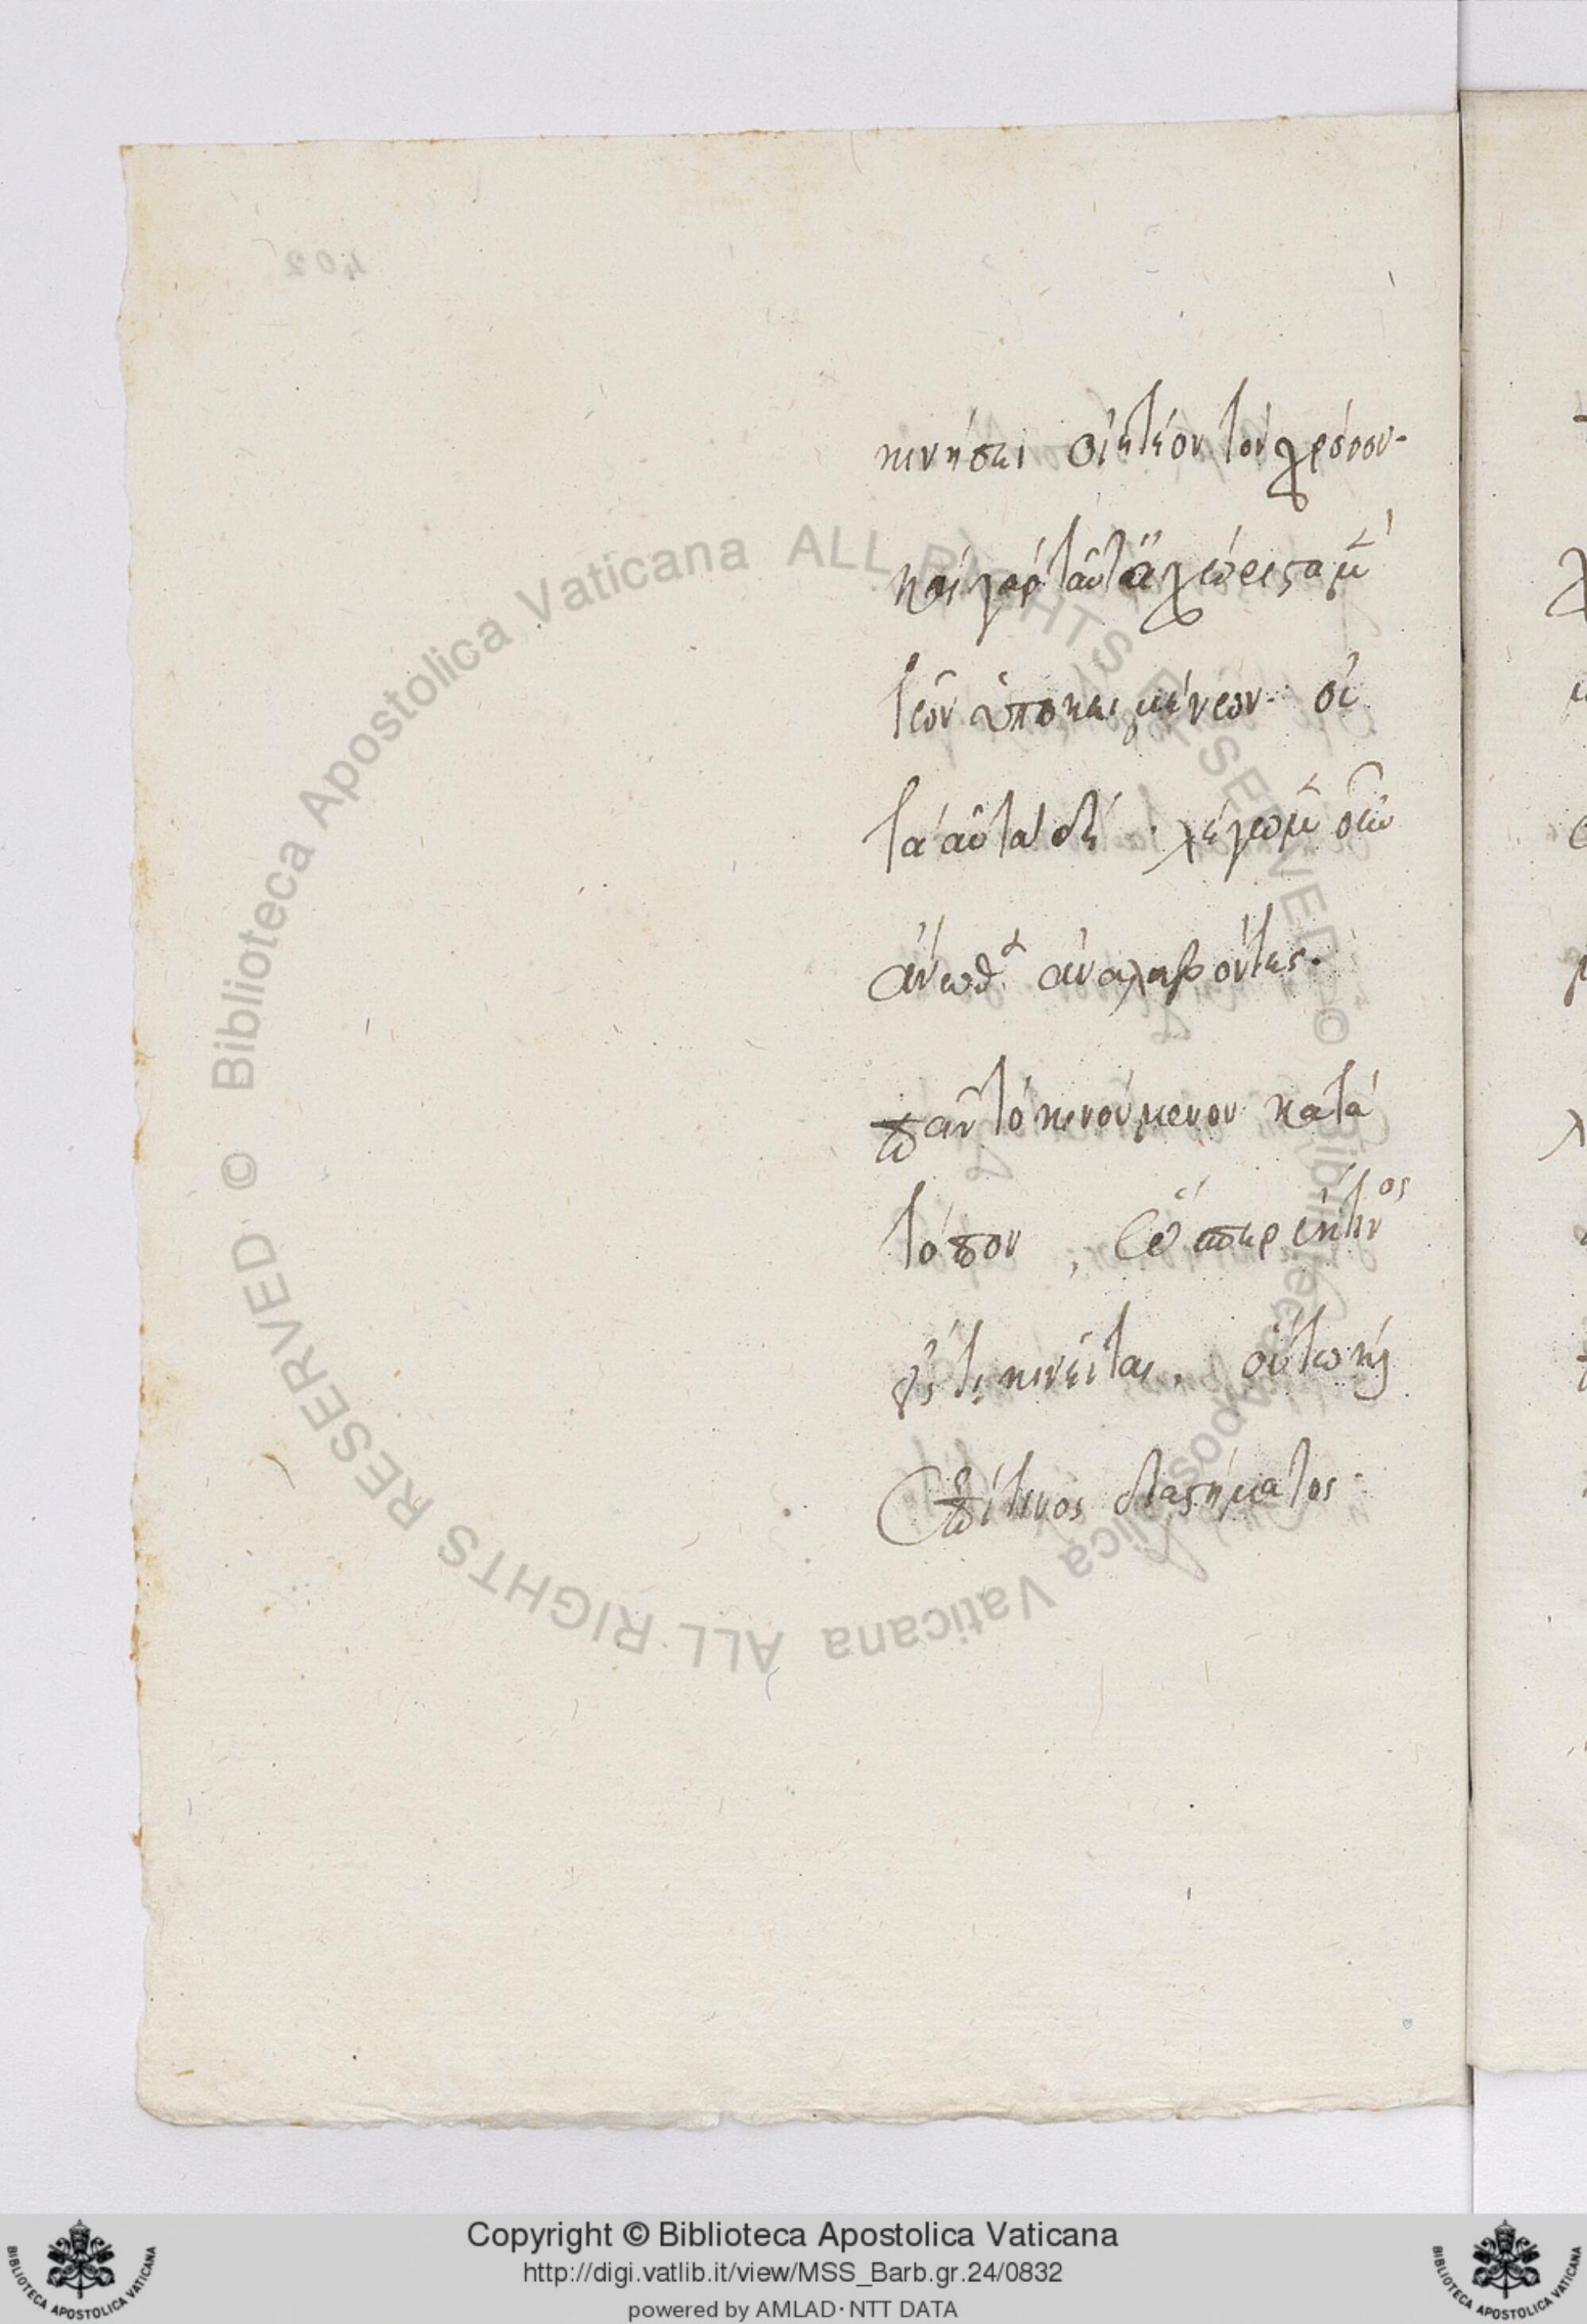 402
κινήσει οἰητέον τὸν χρόνον·
καὶ γὰρ ταῦτα ἀχώριστα μ̃
τῶν ὑποκειμένων· οὐ
ταὐτὰ δέ· λέγωμ̃
ἄνωθ̃ ἀναλαβόντες·
πᾶν τὸ κινούμενον κατὰ
τόπον, ὥσπερ ἐντὸς
τι κινεῖται, οὕτω καὶ
ἐπί τινος διαστήματος·
© Biblioteca Apostolica Vaticana ALL RIGHTS RESERVED © Biblioteca Apostolica Vaticana ALL RIGHTS RESERVED
Copyright © Biblioteca Apostolica Vaticana
http://digi.vatlib.it/view/MSS_Barb.gr.24/0832
powered by AMLAD·NTT DATA
BIBLIOTECA APOSTOLICA VATICANA
BIBLIOTECA APOSTOLICA VATICANA